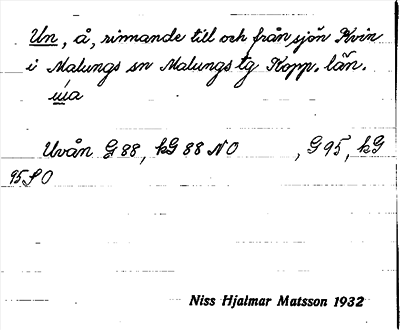 Un, å, rinnande till och från sjön Kvin
i Malungs sn Malungs tg Kopp. län.
úia
Uvån G 88, kG 88 NO , G 95, kG
95 SO
Niss Hjalmar Matsson 1932